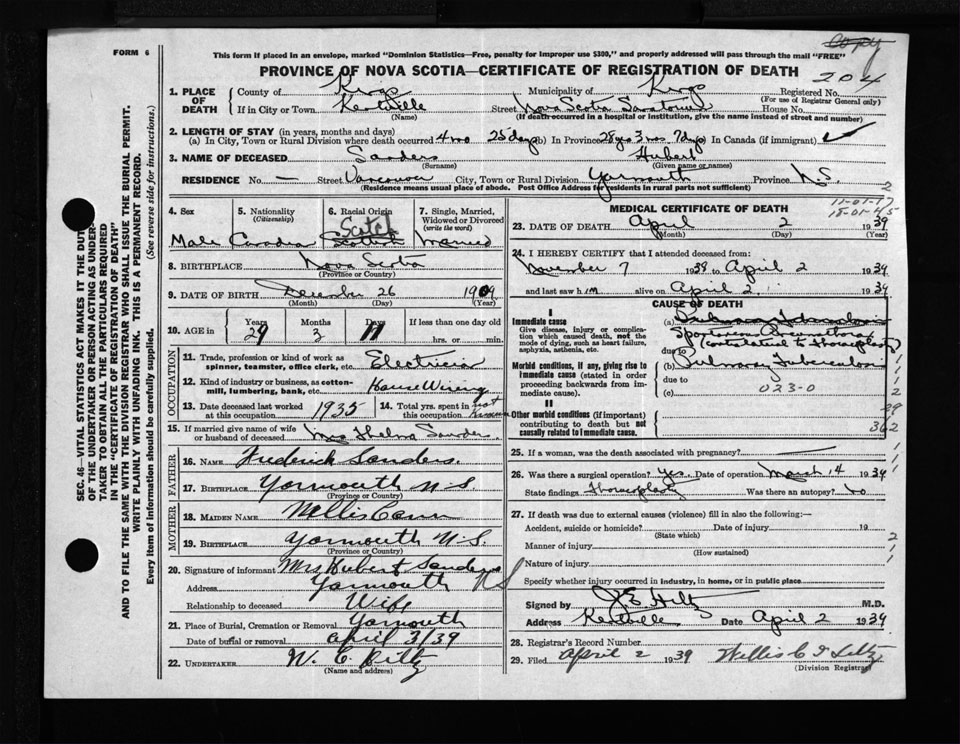 FORM 6
copy
This form if placed in an envelope, marked "Dominion Statistics—Free, penalty for improper use $300," and properly addressed will pass through the mail "FREE"
PROVINCE OF NOVA SCOTIA—CERTIFICATE OF REGISTRATION OF DEATH
204
1. PLACE OF DEATH County of Kings Municipality of Kings Registered No.
(For use of Registrar General only)
If in City or Town Kentville Street Nova Scotia Sanatorium House No.
(Name) (If death occurred in a hospital or institution, give the name instead of street and number)
2. LENGTH OF STAY (in years, months and days)
(a) In City, Town or Rural Division where death occurred 4 mo 25 days (b) In Province 28 yrs 3 mos 7 days (c) In Canada (if immigrant)
3. NAME OF DECEASED Sanders Hubert
(Surname) (Given name or names)
RESIDENCE No. — Street Vancouver City, Town or Rural Division Yarmouth Province N.S.
(Residence means usual place of abode. Post Office Address for residents in rural parts not sufficient)
2
4. Sex 5. Nationality 6. Racial Origin 7. Single, Married, Widowed or Divorced
(Citizenship) (write the word)
Scotch
Male Canadian Scottish Married
8. BIRTHPLACE Nova Scotia
(Province or Country)
9. DATE OF BIRTH December 26 1909
(Month) (Day) (Year)
10. AGE in Years Months Days If less than one day old
29 3 hrs. or min.
OCCUPATION
11. Trade, profession or kind of work as spinner, teamster, office clerk, etc. Electrician
12. Kind of industry or business, as cotton-mill, lumbering, bank, etc. House Wiring
13. Date deceased last worked at this occupation 1935 14. Total yrs. spent in this occupation not known
15. If married give name of wife or husband of deceased Mrs Thelma Sanders
FATHER
16. NAME Frederick Sanders.
17. BIRTHPLACE Yarmouth N.S.
(Province or Country)
MOTHER
18. MAIDEN NAME
19. BIRTHPLACE Yarmouth N.S.
(Province or Country)
20. Signature of informant Mrs Hubert Sanders
Address Yarmouth NS
Relationship to deceased Wife
21. Place of Burial, Cremation or Removal Yarmouth
Date of burial or removal April 3/39
22. UNDERTAKER W. C.
(Name and address)
MEDICAL CERTIFICATE OF DEATH
11-01-17
18-01-45
23. DATE OF DEATH April 2 1939
(Month) (Day) (Year)
24. I HEREBY CERTIFY that I attended deceased from:
November 7 1938 to April 2 1939
and last saw him alive on April 2 1939
CAUSE OF DEATH
I
Immediate cause (a) Pulmonary Tuberculosis
Give disease, injury or complication which caused death, not the mode of dying, such as heart failure, asphyxia, asthenia, etc.
due to
Morbid conditions, if any, giving rise to immediate cause (stated in order proceeding backwards from immediate cause).
(b) Pulmonary Tuberculosis
due to
(c) 023-0
II
Other morbid conditions (if important) contributing to death but not causally related to immediate cause.
29
362
25. If a woman, was the death associated with pregnancy?
26. Was there a surgical operation? yes. Date of operation March 14 1939
State findings Was there an autopsy? no
27. If death was due to external causes (violence) fill in also the following:—
Accident, suicide or homicide? Date of injury 19
(State which)
Manner of injury
(How sustained)
Nature of injury
Specify whether injury occurred in industry, in home, or in public place
Signed by J E Hiltz M.D.
Address Kentville Date April 2 1939
28. Registrar's Record Number
29. Filed April 2 1939
(Division Registrar)
SEC. 46—VITAL STATISTICS ACT MAKES IT THE DUTY OF THE UNDERTAKER OR PERSON ACTING AS UNDERTAKER TO OBTAIN ALL THE PARTICULARS REQUIRED IN THE "CERTIFICATE OF REGISTRATION OF DEATH" AND TO FILE THE SAME WITH THE DIVISION REGISTRAR WHO SHALL ISSUE THE BURIAL PERMIT.
WRITE PLAINLY WITH UNFADING INK. THIS IS A PERMANENT RECORD.
Every item of information should be carefully supplied. (See reverse side for instructions.)